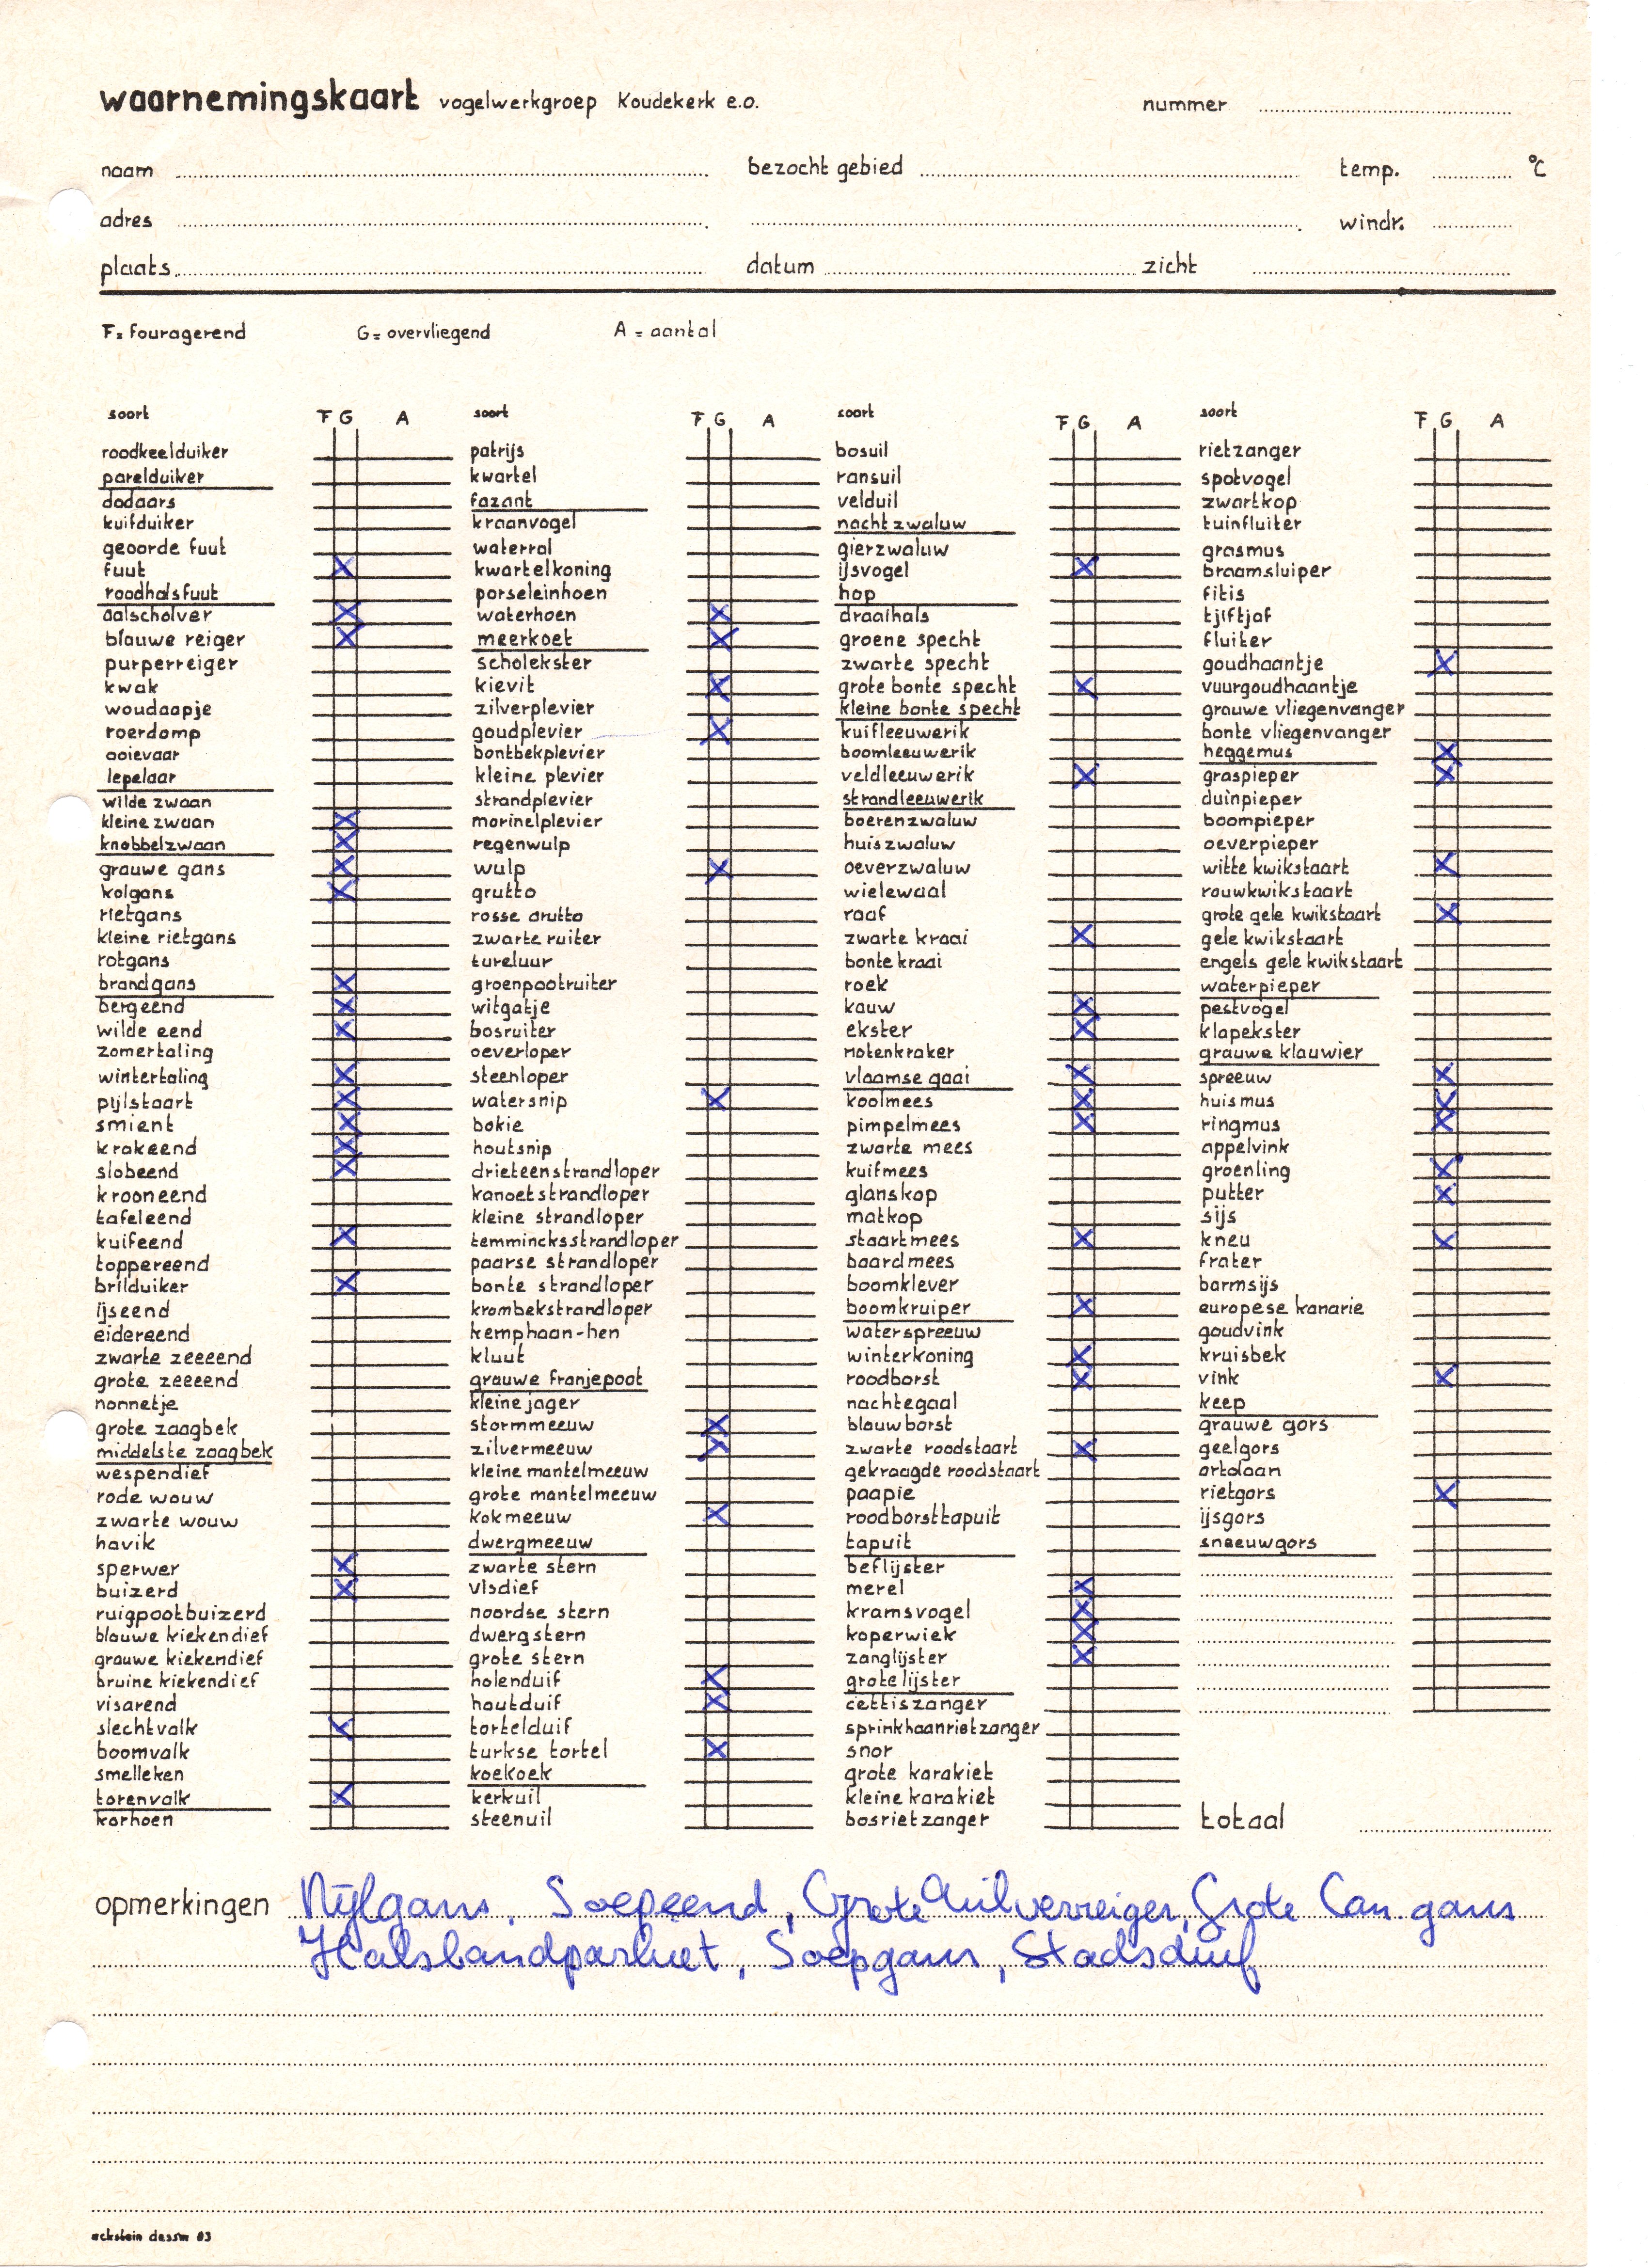 waarnemingskaart vogelwerkgroep Koudekerk e.o. nummer
naam bezocht gebied temp. °C
adres windr.
plaats datum zicht
F= fouragerend G= overvliegend A = aantal
soort F G A soort F G A soort F G A soort F G A
roodkeelduiker patrijs bosuil rietzanger
parelduiker kwartel ransuil spotvogel
dodaars fazant velduil zwartkop
kuifduiker kraanvogel nachtzwaluw tuinfluiter
geoorde fuut waterral gierzwaluw grasmus
fuut X kwartelkoning ijsvogel X braamsluiper
roodhalsfuut porseleinhoen hop fitis
aalscholver X waterhoen X draaihals tjiftjaf
blauwe reiger X meerkoet X groene specht fluiter
purperreiger scholekster zwarte specht goudhaantje X
kwak kievit X grote bonte specht X vuurgoudhaantje
woudaapje zilverplevier kleine bonte specht grauwe vliegenvanger
roerdomp goudplevier X kuifleeuwerik bonte vliegenvanger
ooievaar bontbekplevier boomleeuwerik heggemus X
lepelaar kleine plevier veldleeuwerik X graspieper X
wilde zwaan strandplevier strandleeuwerik duinpieper
kleine zwaan X morinelplevier boerenzwaluw boompieper
knobbelzwaan X regenwulp huiszwaluw oeverpieper
grauwe gans X wulp X oeverzwaluw witte kwikstaart X
kolgans X grutto wielewaal rouwkwikstaart
rietgans rosse grutto raaf grote gele kwikstaart X
kleine rietgans zwarte ruiter zwarte kraai X gele kwikstaart
rotgans tureluur bonte kraai engels gele kwikstaart
brandgans X groenpootruiter roek waterpieper
bergeend X witgatje kauw X pestvogel
wilde eend X bosruiter ekster X klapekster
zomertaling oeverloper notenkraker grauwe klauwier
wintertaling X steenloper vlaamse gaai X spreeuw X
pijlstaart X watersnip X koolmees X huismus X
smient X bokje pimpelmees X ringmus X
krakeend X houtsnip zwarte mees appelvink
slobeend X drieteenstrandloper kuifmees groenling X
krooneend kanoetstrandloper glanskop putter X
tafeleend kleine strandloper matkop sijs
kuifeend X temmincksstrandloper staartmees X kneu X
toppereend paarse strandloper baardmees frater
brilduiker X bonte strandloper boomklever barmsijs
ijseend krombekstrandloper boomkruiper X europese kanarie
eidereend kemphaan-hen waterspreeuw goudvink
zwarte zeeeend kluut winterkoning X kruisbek
grote zeeeend grauwe franjepoot roodborst X vink X
nonnetje kleine jager nachtegaal keep
grote zaagbek stormmeeuw X blauwborst grauwe gors
middelste zaagbek zilvermeeuw X zwarte roodstaart X geelgors
wespendief kleine mantelmeeuw gekraagde roodstaart ortolaan
rode wouw grote mantelmeeuw paapje rietgors X
zwarte wouw kokmeeuw X roodborsttapuit ijsgors
havik dwergmeeuw tapuit sneeuwgors
sperwer X zwarte stern beflijster
buizerd X visdief merel X
ruigpootbuizerd noordse stern kramsvogel X
blauwe kiekendief dwergstern koperwiek X
grauwe kiekendief grote stern zanglijster X
bruine kiekendief holenduif X grote lijster
visarend houtduif X cettiszanger
slechtvalk X tortelduif sprinkhaanrietzanger
boomvalk turkse tortel X snor
smelleken koekoek grote karakiet
torenvalk X kerkuil kleine karakiet
korhoen steenuil bosrietzanger totaal
opmerkingen Nijlgans, Soepeend, Grote Zilverreiger, Grote Can. gans
Halsbandparkiet, Soepgans, Stadsduif
eckstein dessw 83